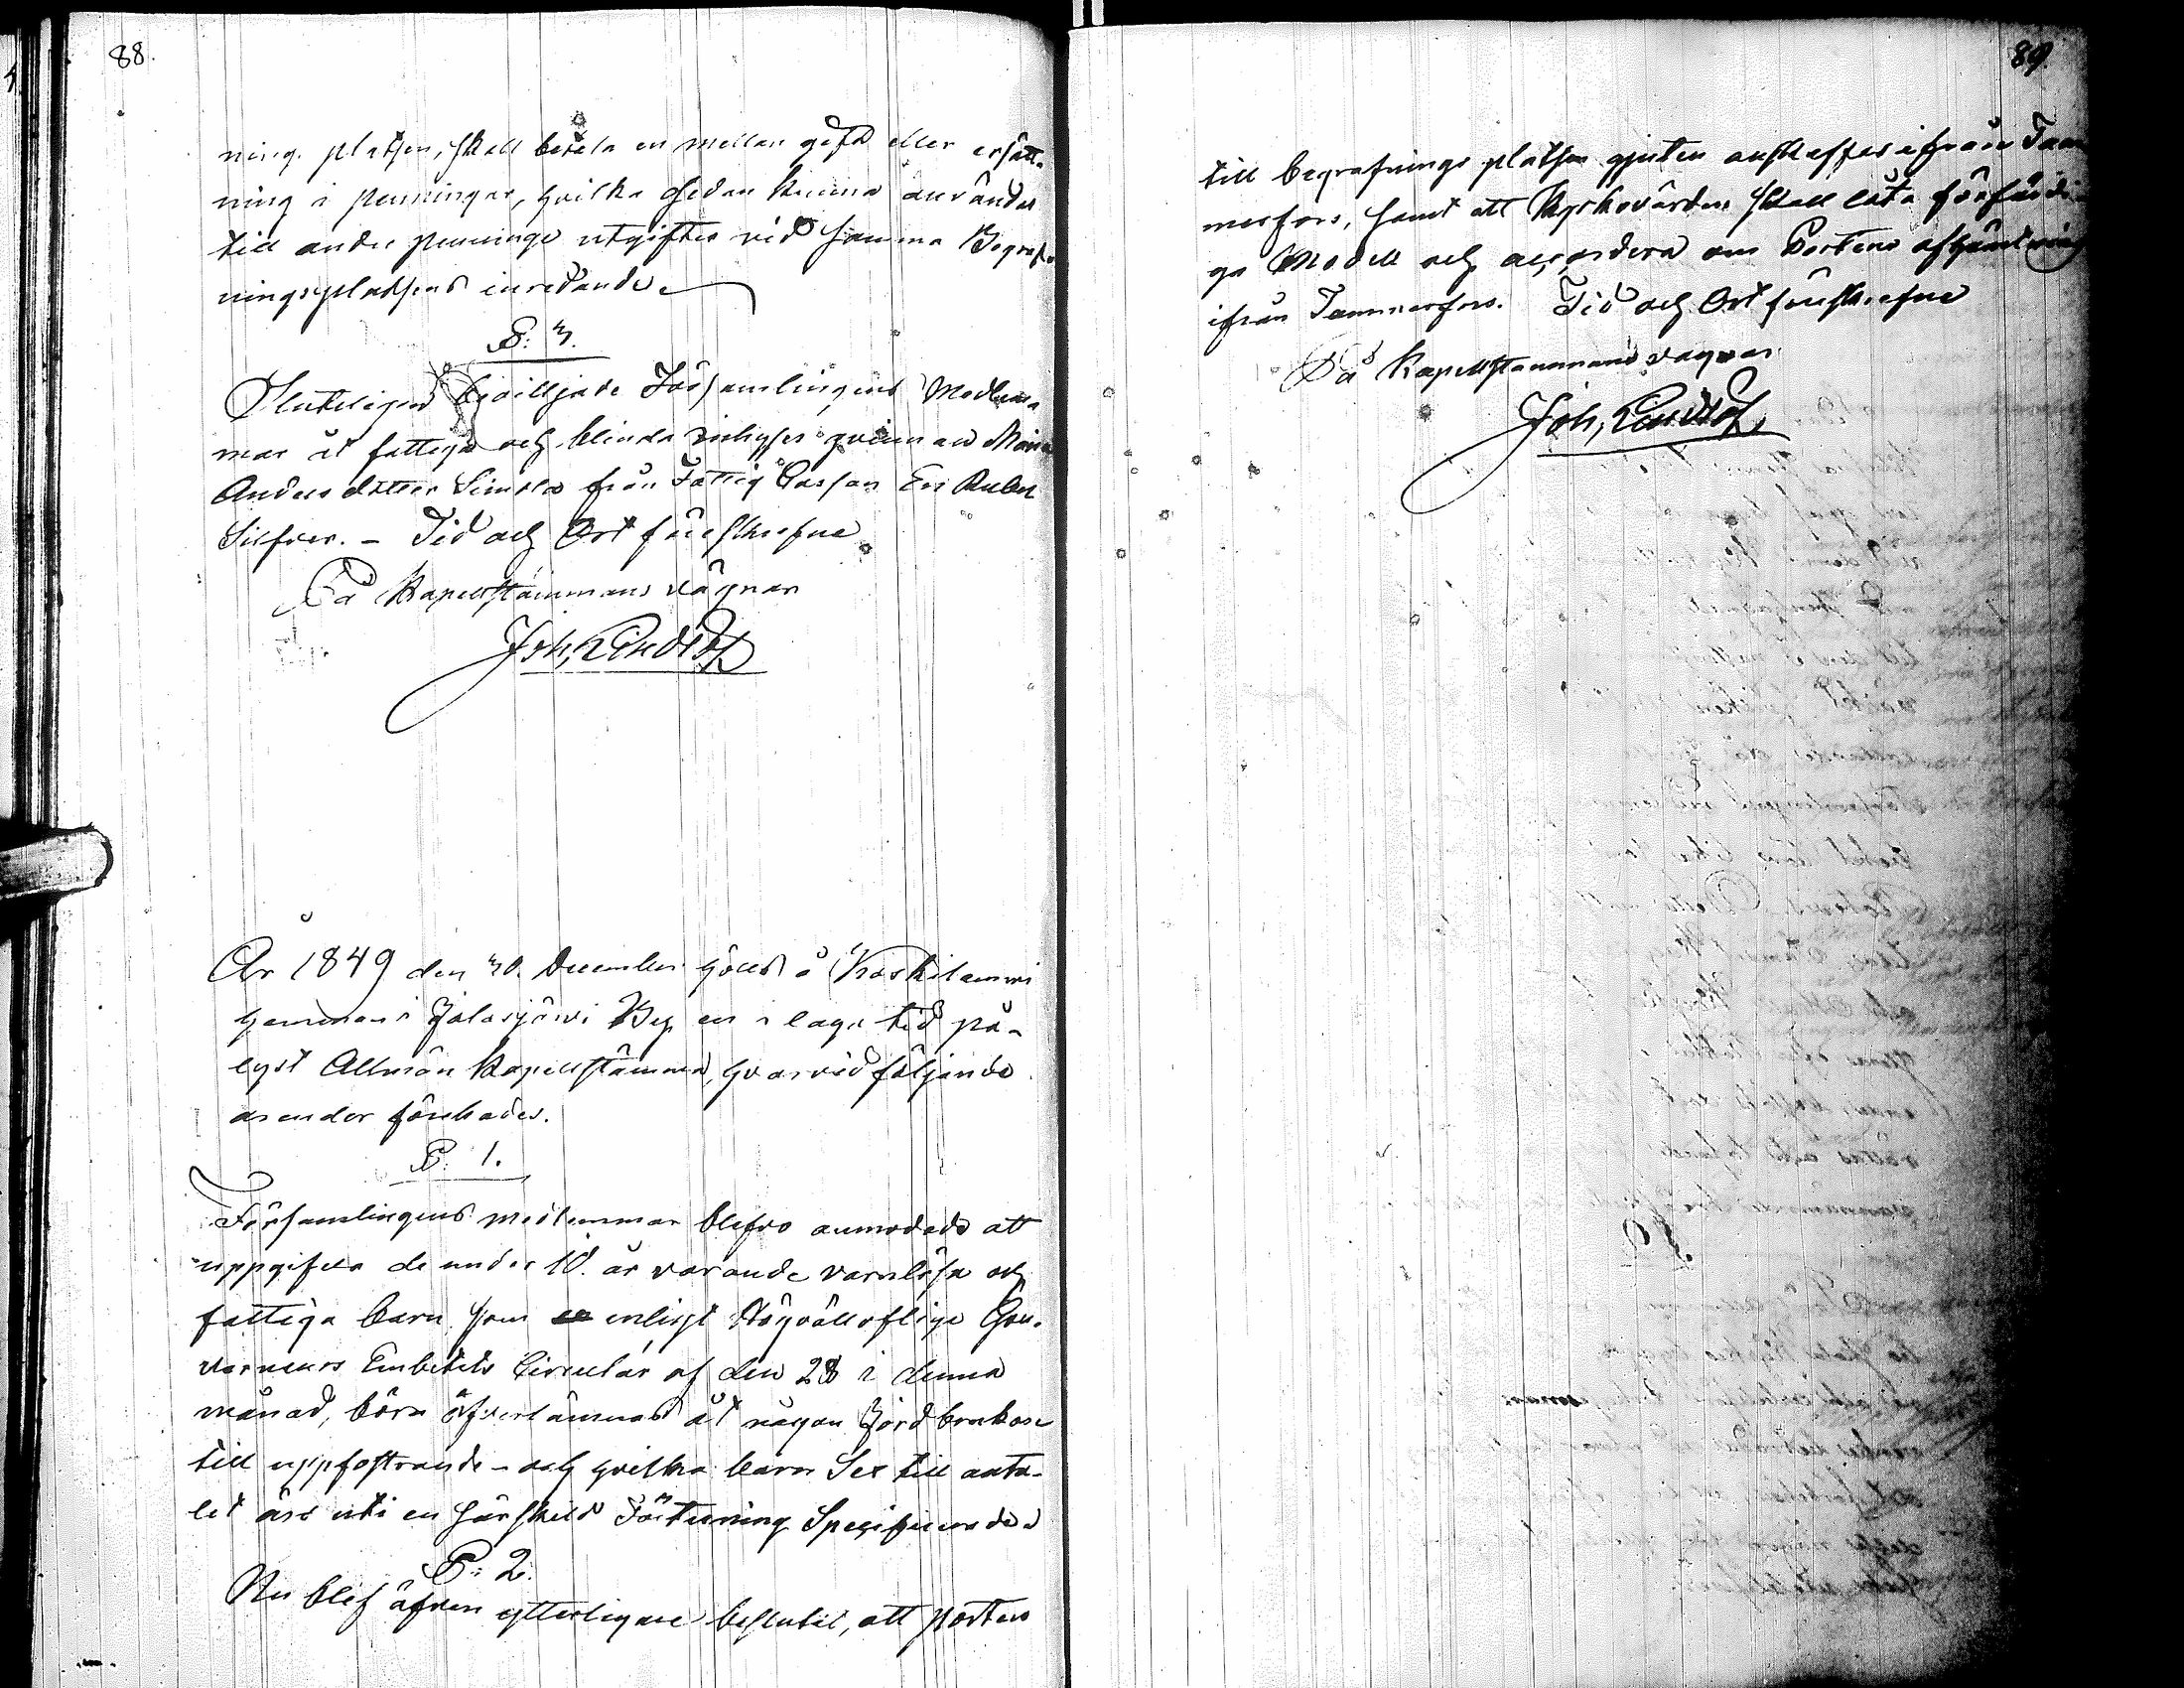 88.
ning. platsen, skall betala en mellan gift eller ersätt-
ning i penningar, hvilka sedan kunna användas
till andre penninge utgifter vid samma Begraf-
ningsplatsens inredande.
§. 3.
Sluteligen bevilljade Församlingens Medlem-
mar åt fattiga och blinda qvinnan Maria
Anders dotter Simola från Fattig Cassan En Rubel
Silfver. - Tid och Ort föreskrefne
På Kapellstämmans vägnar
Joh, Lindlöf
År 1849 den 30. December hölls å Koskilammi
hemman i Jalasjärvi By en i laga tid på-
lyst Allmän Kapellstämma, hvarvid följande
ärender förehades.
§. 1.
Församlingens medlemmar blefvo anmodade att
uppgifva de under 10. år varande varnlösa och
fattiga barn som enligt Högvällofliga Gou-
verneurs Embetets Circulär af den 28 i denna
månad, böra öfverlämnas åt någon Jordbrukare
till uppfostrande - och hvilka barn Sex till anta-
let äro uti en särskild Förteckning Specificerade
§. 2.
Nu blef äfven ytterligare beslutit, att porten
89.
till begrafnings platsen gjuten anskaffas ifrån Tam-
merfors, samt att Kyrkovärden skall låta förfärdi-
ga Modell och accordera om Portens afhämtning
ifrån Tammerfors. Tid och Ort förskrefne
På Kapellstämmans vägnar
Joh, Lindlöf,